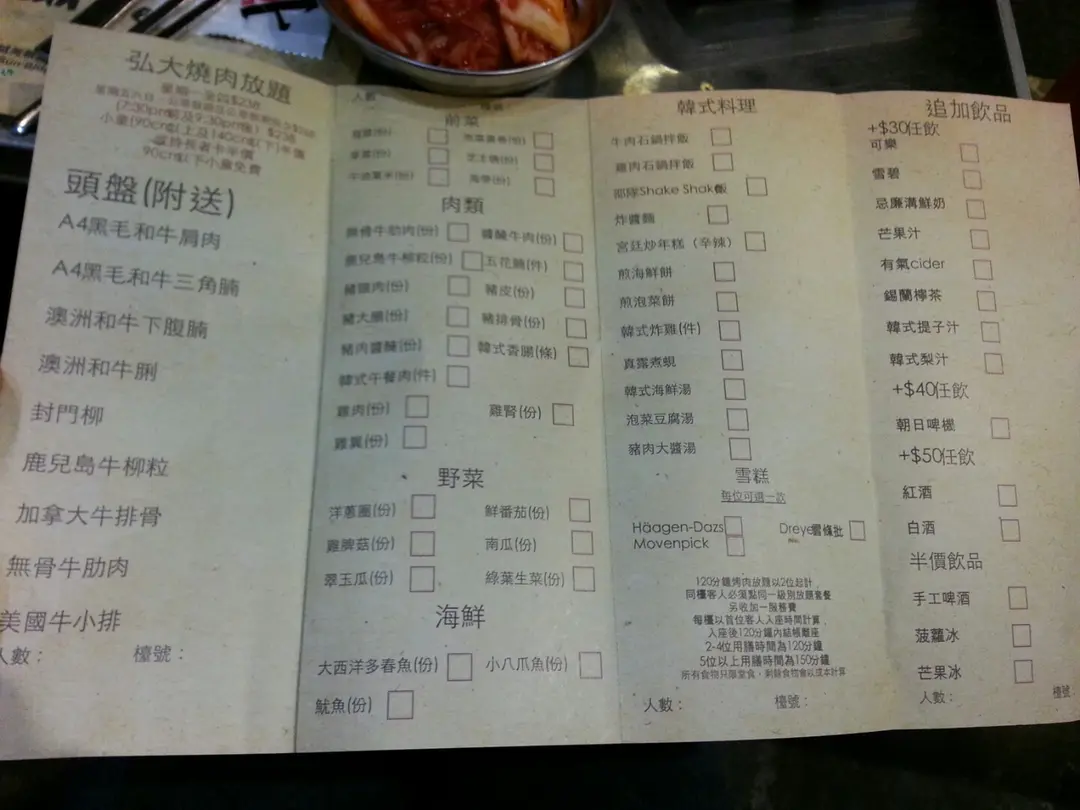 弘大燒肉放題
星期一至四$238
(7:30pm前及9:30pm後) $238
小童(90cm以上及140cm以下)半價
90cm以下小童免費
頭盤(附送)
A4黑毛和牛肩肉
A4黑毛和牛三角腩
澳洲和牛下腹腩
澳洲和牛脷
封門柳
鹿兒島牛柳粒
加拿大牛排骨
無骨牛肋肉
美國牛小排
人數：
檯號：
人數：
檯號：
前菜
牛油粟米(份)
芝士條(份)
肉類
無骨牛肋肉(份)
醬醃牛肉(份)
鹿兒島牛柳粒(份)
五花腩(件)
豬頸肉(份)
豬皮(份)
豬大腸(份)
豬排骨(份)
豬肉醬醃(份)
韓式香腸(條)
韓式午餐肉(件)
雞肉(份)
雞腎(份)
雞翼(份)
野菜
洋蔥圈(份)
鮮番茄(份)
雞脾菇(份)
南瓜(份)
翠玉瓜(份)
綠葉生菜(份)
海鮮
大西洋多春魚(份)
小八爪魚(份)
魷魚(份)
韓式料理
牛肉石鍋拌飯
雞肉石鍋拌飯
部隊Shake Shake飯
炸醬麵
宮廷炒年糕（辛辣）
煎海鮮餅
煎泡菜餅
韓式炸雞(件)
真露煮蜆
韓式海鮮湯
泡菜豆腐湯
豬肉大醬湯
雪糕
每位可選一款
Häagen-Dazs
Dreyer雪條批
Movenpick
120分鐘烤肉放題以2位起計
同檯客人必須點同一級別放題套餐
另收加一服務費
每檯以首位客人入座時間計算
入座後120分鐘內結帳離座
2-4位用膳時間為120分鐘
5位以上用膳時間為150分鐘
所有食物只限堂食，剩餘食物會以成本計算
人數：
檯號：
追加飲品
+$30任飲
可樂
雪碧
忌廉溝鮮奶
芒果汁
有氣cider
錫蘭檸茶
韓式提子汁
韓式梨汁
+$40任飲
朝日啤機
+$50任飲
紅酒
白酒
半價飲品
手工啤酒
菠蘿冰
芒果冰
人數：
檯號：